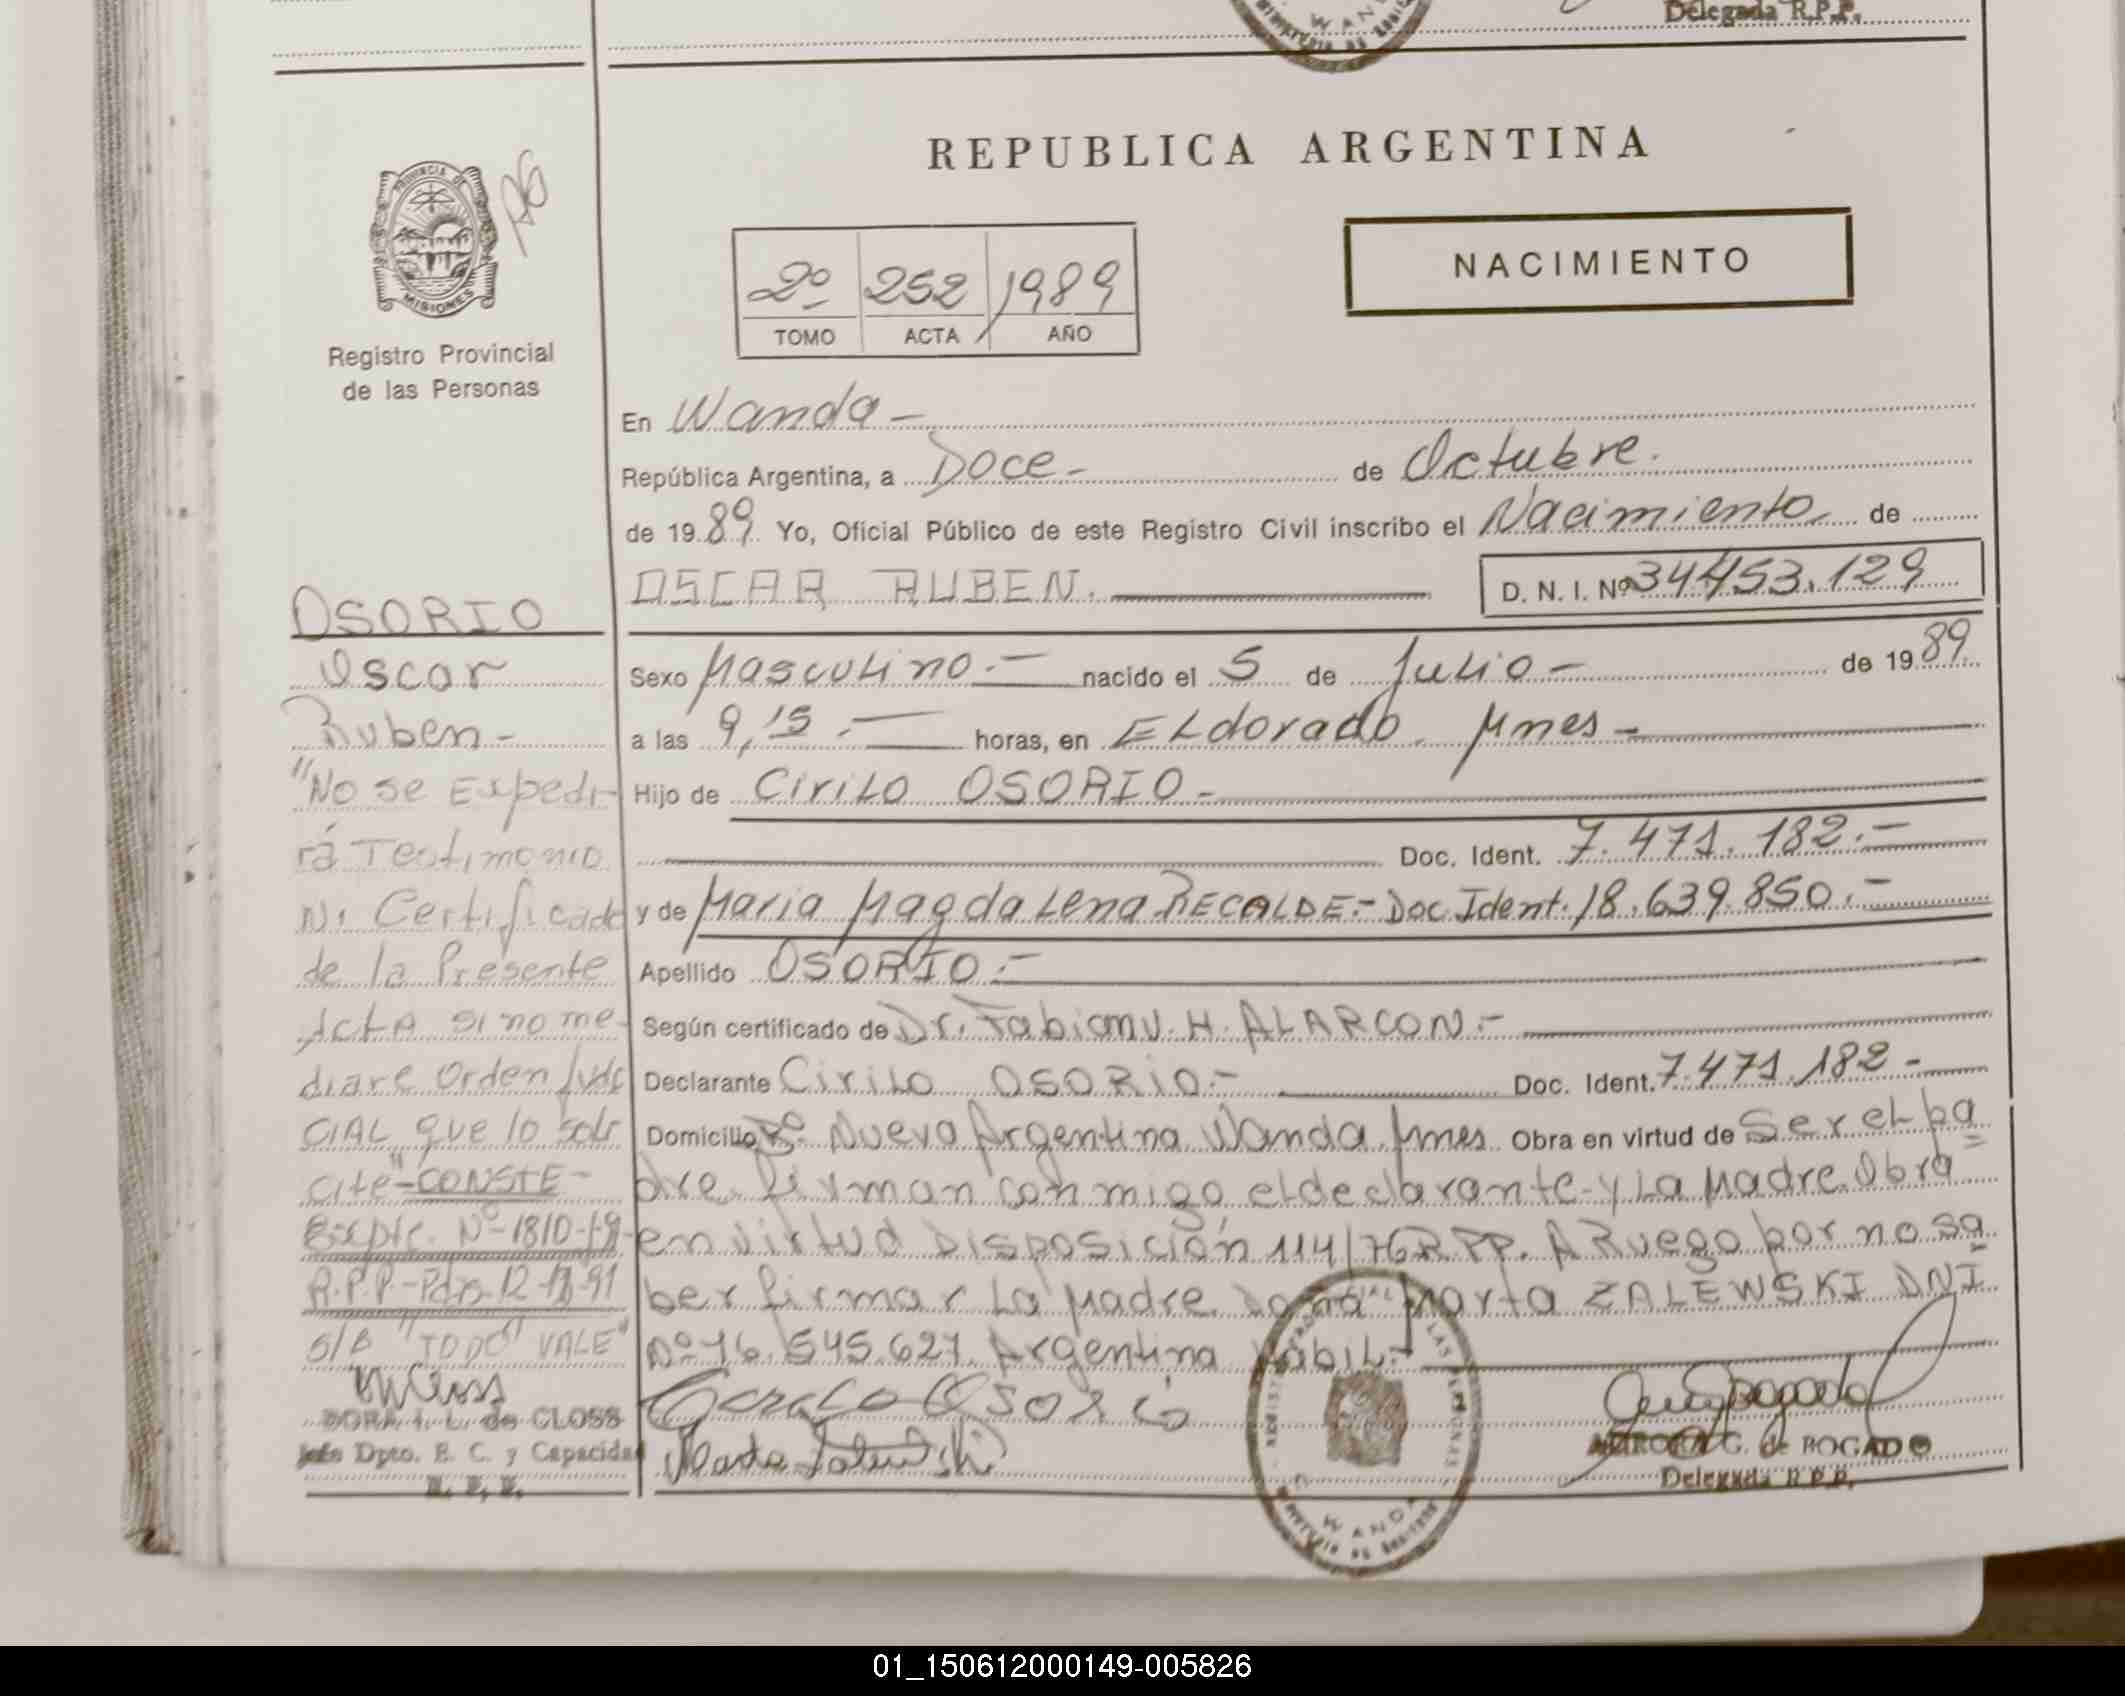 Delegada R.P.P.
WANDA
REPUBLICA ARGENTINA
PROVINCIA DE
MISIONES
Registro Provincial
de las Personas
2º 252 1989
TOMO ACTA AÑO
NACIMIENTO
En Wanda-
República Argentina, a Doce- de Octubre.
de 1989. Yo, Oficial Público de este Registro Civil inscribo el Nacimiento de
OSCAR RUBEN. D. N. I. Nº 34453.129
Sexo Masculino.- nacido el 5 de Julio- de 1989.
a las 9,15.- horas, en ELdorado. Mnes-
Hijo de Cirilo OSORIO-
Doc. Ident. 7.471.182.-
y de Maria Magdalena RECALDE.- Doc. Ident. 18.639.850.-
Apellido OSORIO.-
Según certificado de Dr. H. ALARCON.-
Declarante Cirilo OSORIO.- Doc. Ident. 7.471.182-
Domicilio Bº. Nueva Argentina Wanda. Mnes. Obra en virtud de Ser el pa
dre. firman conmigo el declarante-y La Madre. Obra
en virtud Disposición 114/76 R.PP. A Ruego por no sa
ber firmar La Madre. Doña Marta ZALEWSKI DNI
Nº 16.545.627. Argentina Habil.-
OSORIO
Oscar
Ruben-
"No se Expedi-
rá Testimonio
Ni Certificado
de la Presente
Acta si no me-
diare Orden Judi
CIAL que lo soli
cite"-CONSTE-
Expte. Nº-1810-
R.P.P-Pdas-12-
S/B "TODO" VALE"
DORA I. L. de CLOSS
Jefe Dpto. E. C. y Capacidad
R. P. P.
G. de BOGADO
Delegada R.P.P.
WANDA
01_150612000149-005826